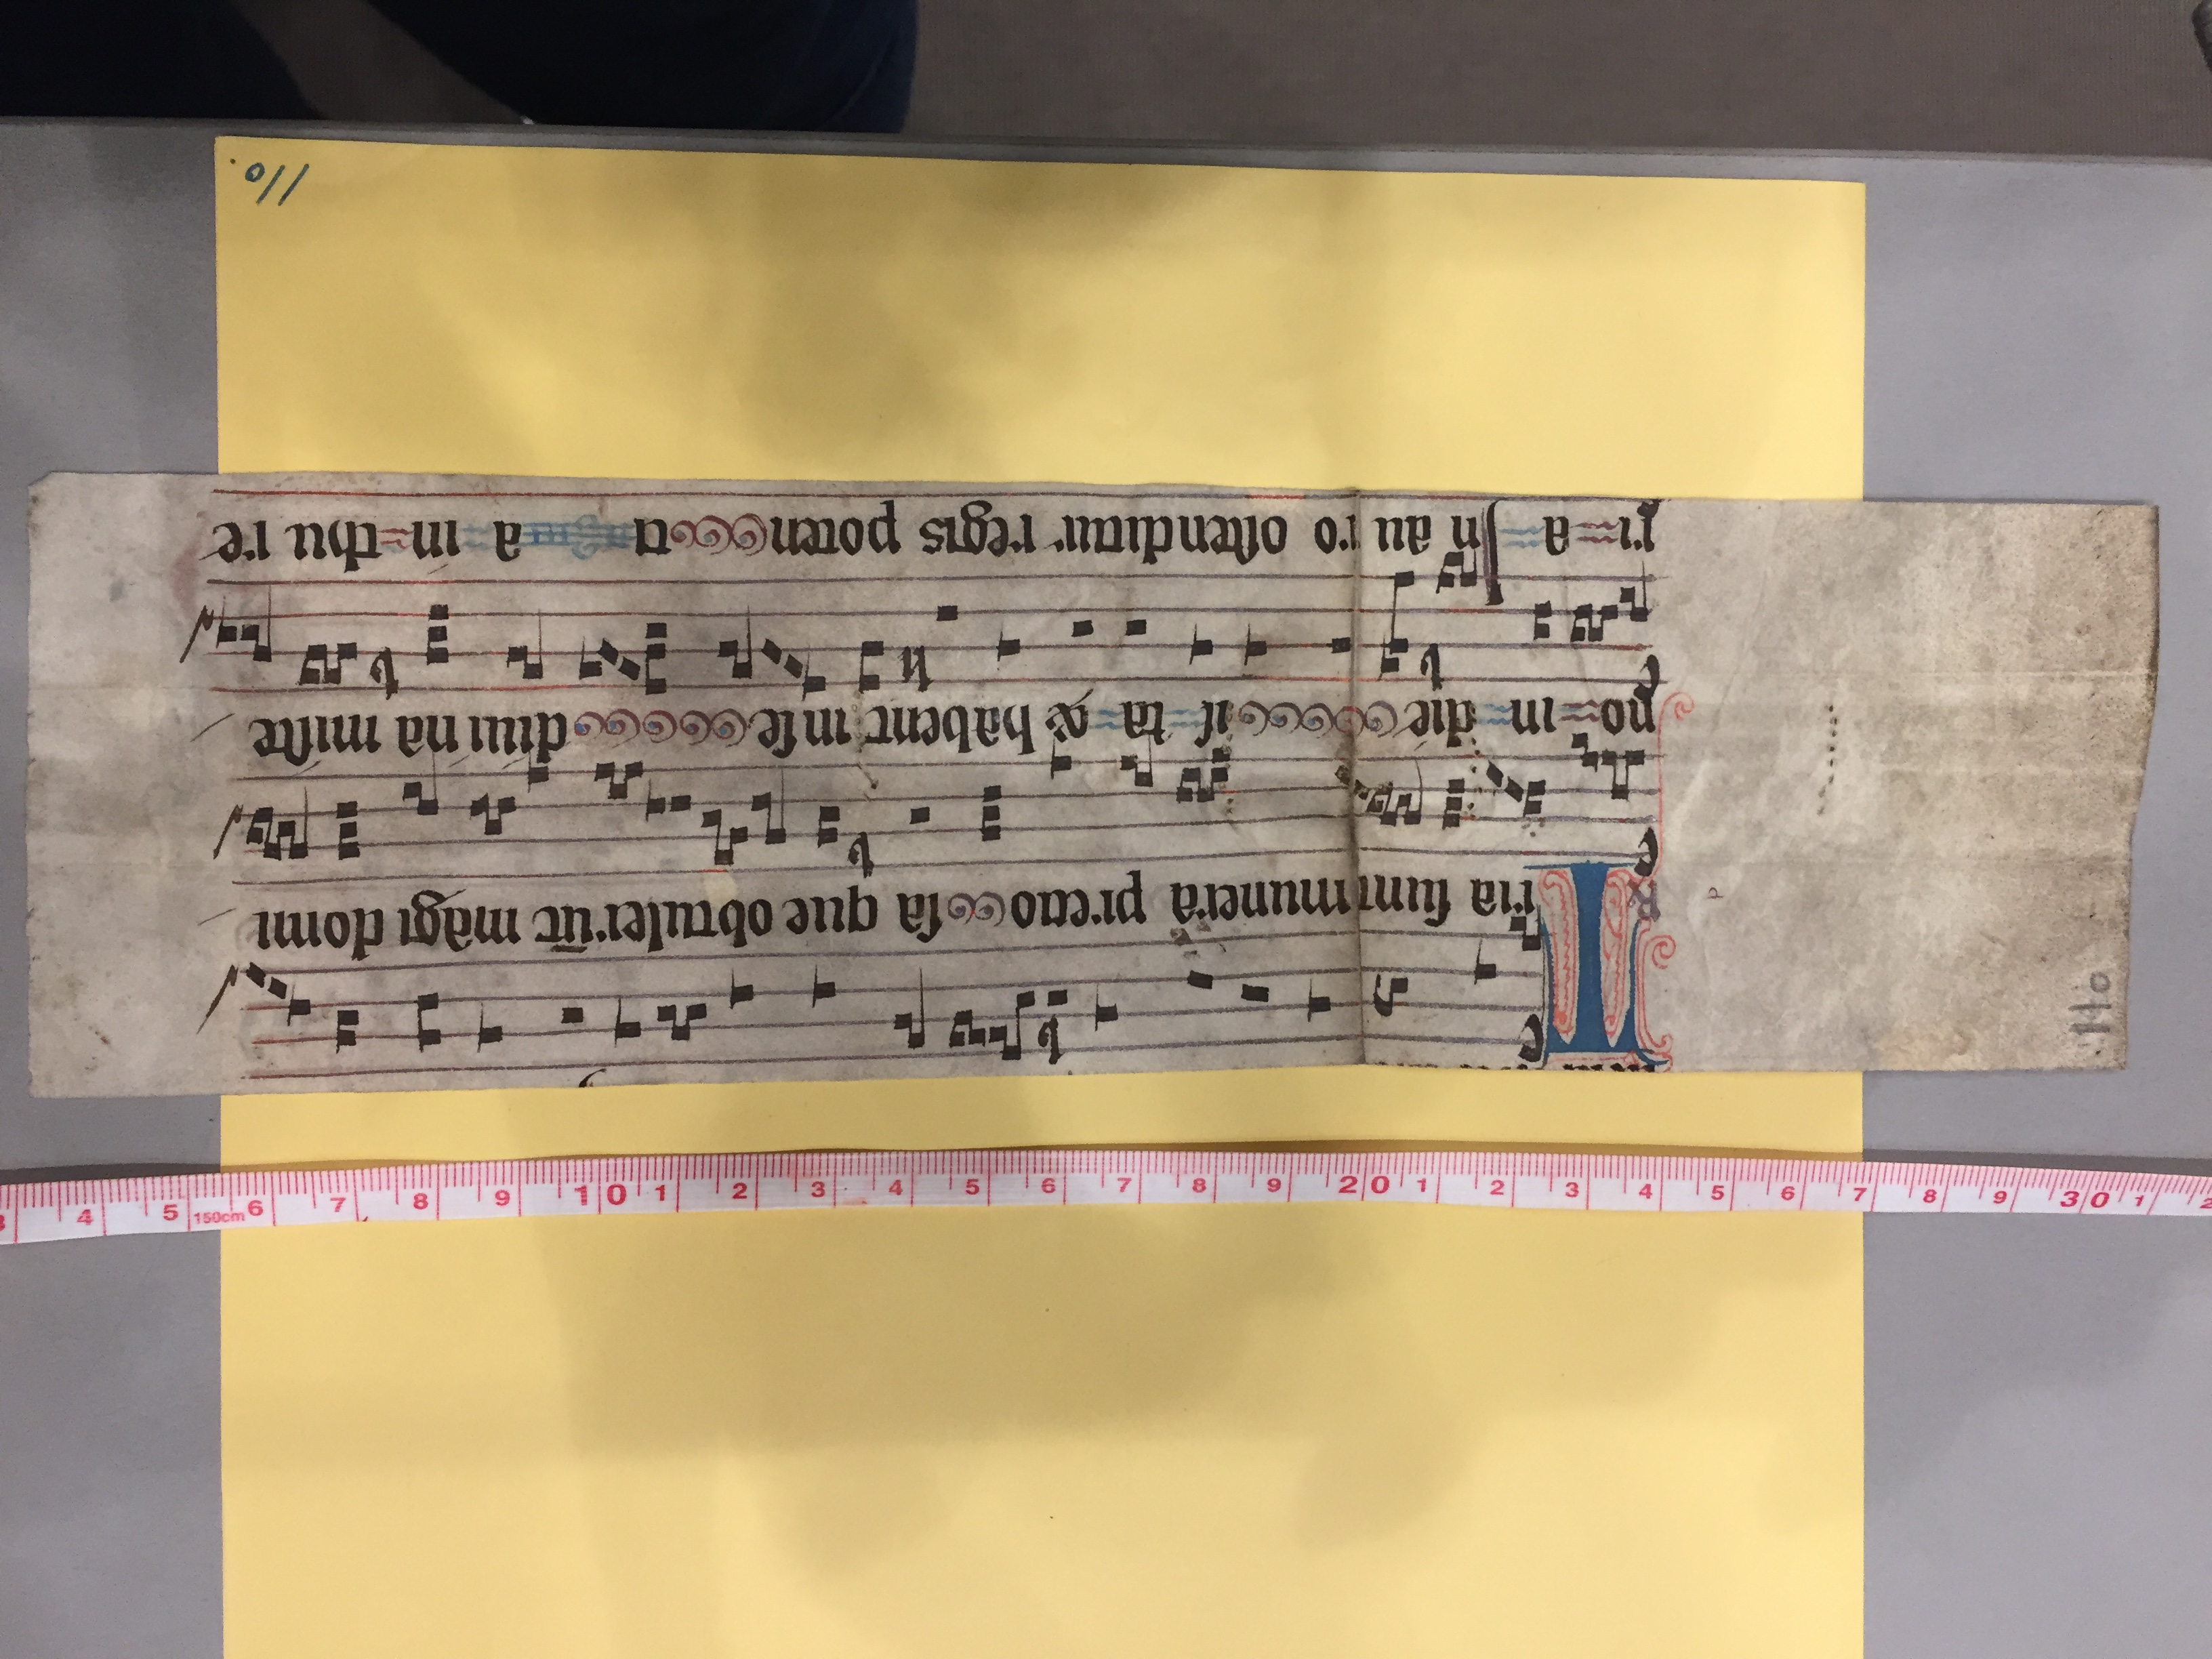 ℟ Tria sunt munera precio sa que obtulerūt magi domi
no in die is ta & habent in se diui na miste
ri a In au ro ostenditur regis poten ti a in thu re
110
110.
3 4 5 150cm 6 7 8 9 10 1 2 3 4 5 6 7 8 9 20 1 2 3 4 5 6 7 8 9 30 1 2